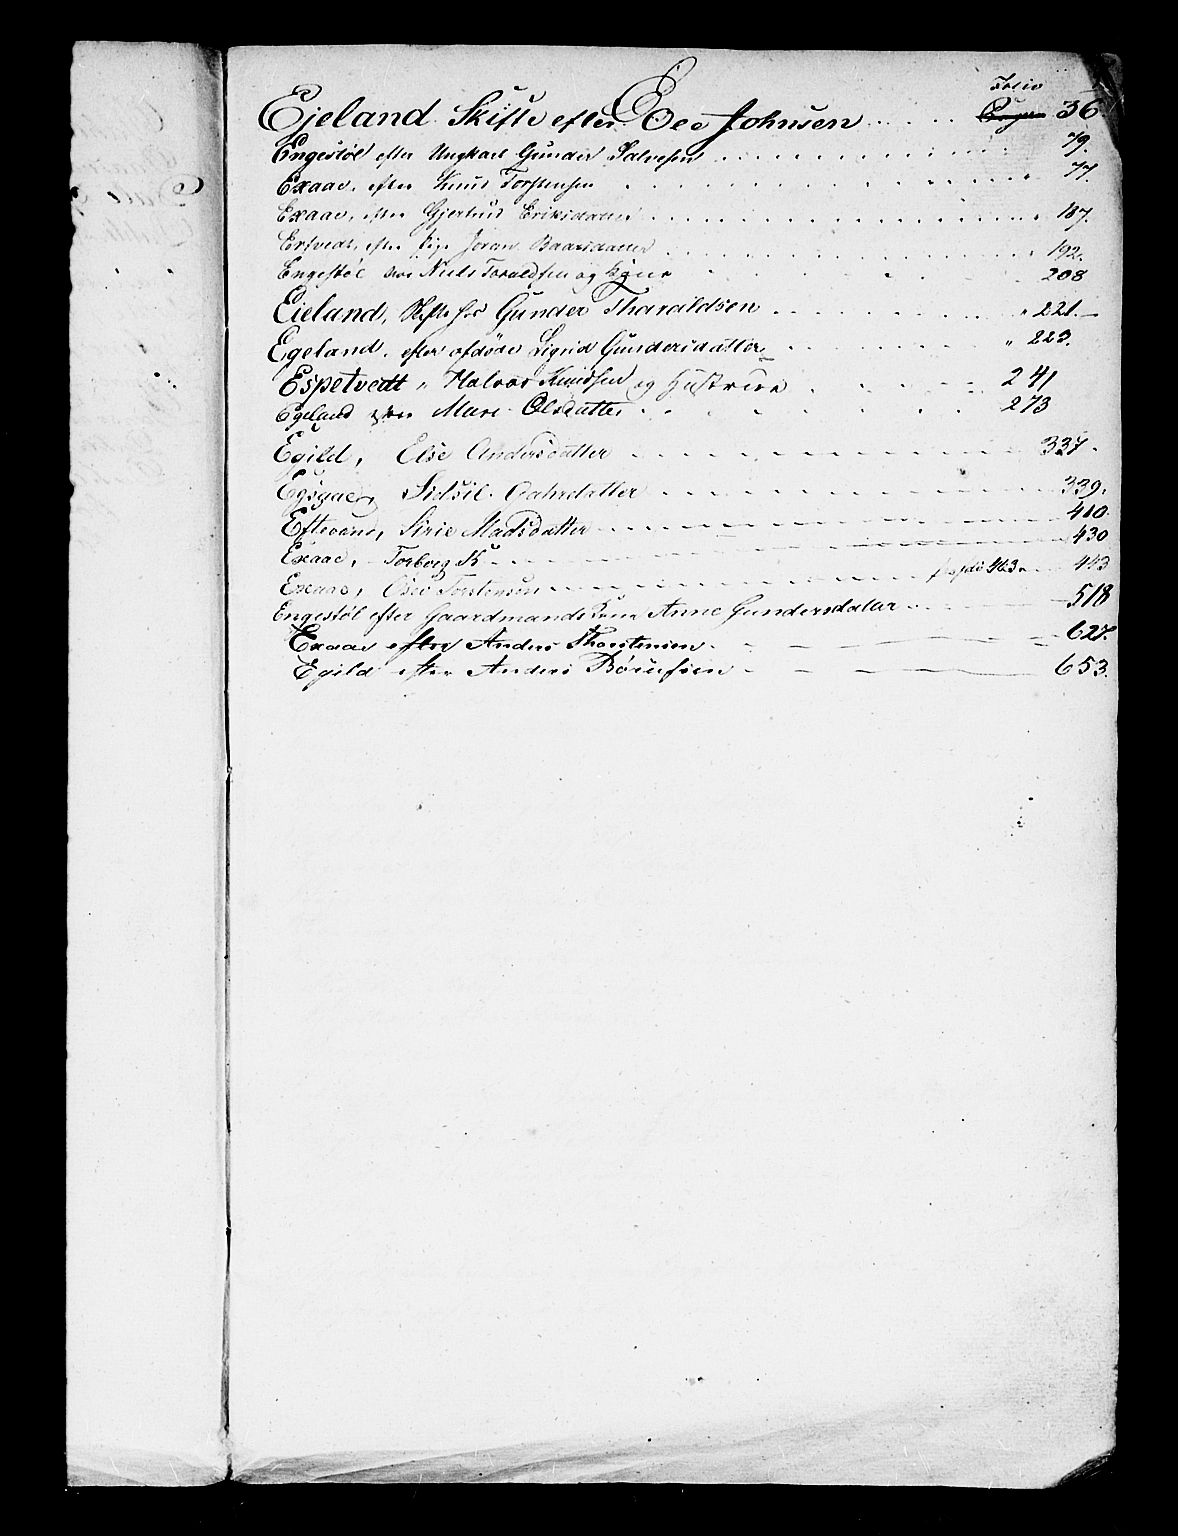 Folio
Ejeland Skifte efter Ole Johnsen 36
Engestøl efter Ungkarl Gunder Salvesen 79.
Exaae, efter Knud Torstensen 77.
Exaae, efter Gjertrud Eriksdatter 187.
Ertvedt, efter Pige Joran Baarsdatter 192.
Engestøl hos Niels Toraldsen og Kone 208
Eieland, Skifte hos Gunder Tharaldsen " 221.
Egeland, efter afdøde Sigrid Gundersdatter " 223.
Espetvedt, Halvor Knudsen og Hustrue 241
Egeland hos Mari Olsdatter 273
Egild, Else Andersdatter 337.
Sidsil 339.
Eftevand, Sirie Madsdatter 410.
Exaae, Torborg K 430
Exaae, Torstensen 463. 443
Engestøl efter Gaardmands Kone Anne Gundersdatter 518
Exaae efter Anders Thorstensen 627.
Egild efter Anders 653.